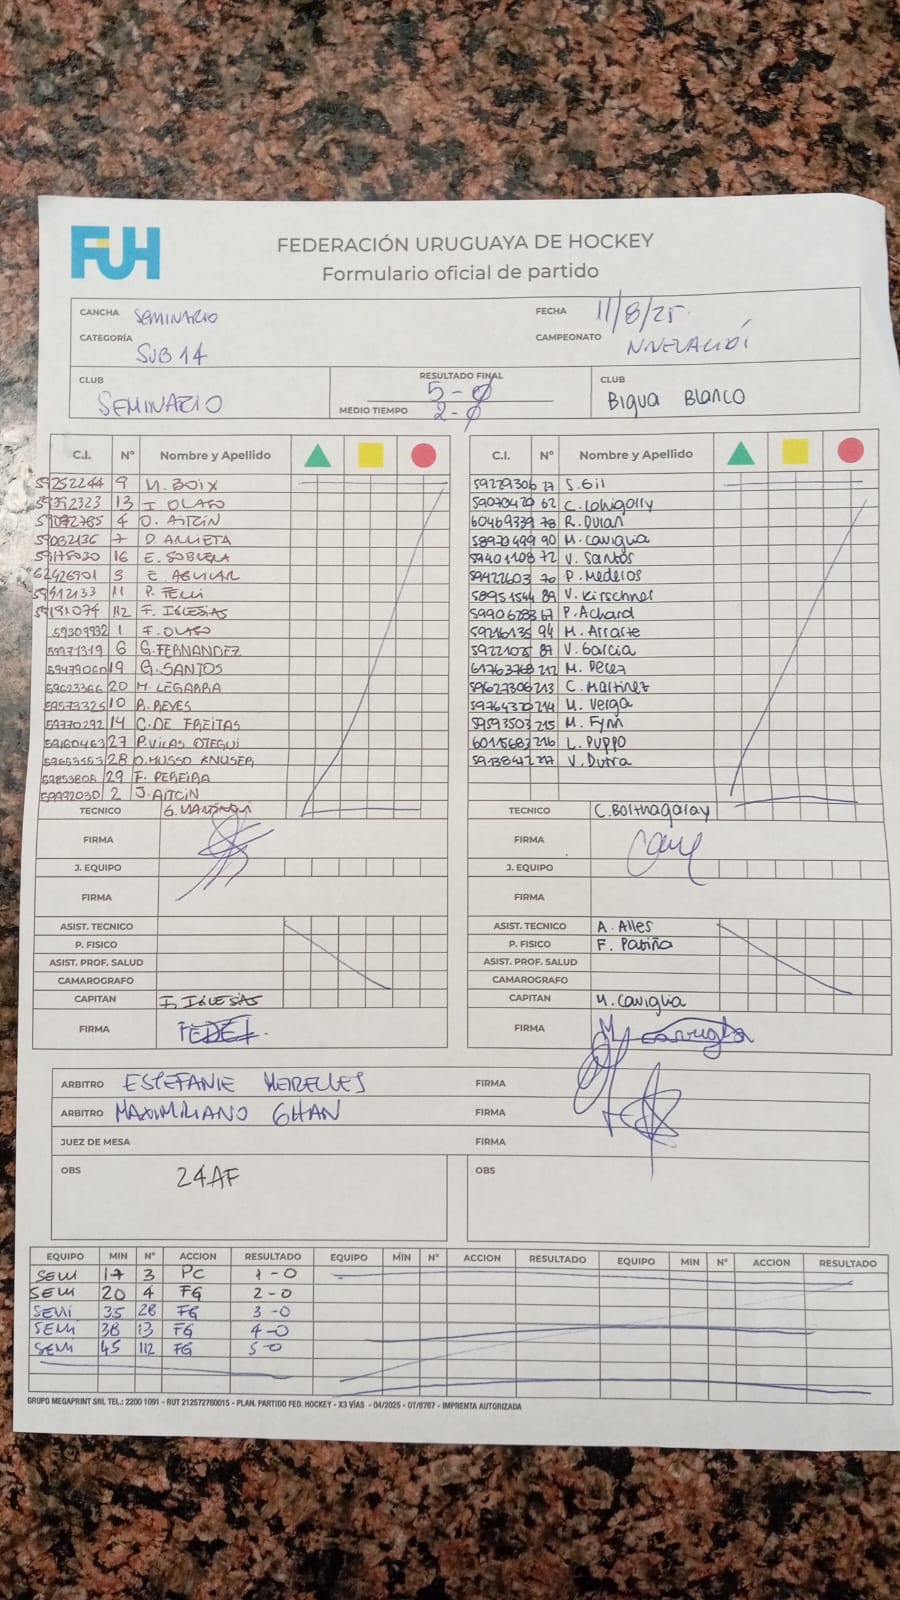 FUH
FEDERACIÓN URUGUAYA DE HOCKEY
Formulario oficial de partido
CANCHA SEMINARIO FECHA 11/8/25.
CATEGORÍA SUB 14 CAMPEONATO
CLUB SEMINARIO RESULTADO FINAL 5-0 CLUB BIGUA BLANCO
MEDIO TIEMPO 2-0
C.I. Nº Nombre y Apellido C.I. Nº Nombre y Apellido
59252244 9 M. BOIX 59229306 27 S. Gil
59392323 13 I. OLASO 59070420 62 C.
4 O. AITCIN 60469339 78 R. Duran
59062136 7 D. ARRIETA 58970499 90 M. Caviglia
59175030 16 E. SOBLERA 59401108 72 V. Santos
62426901 3 E. AGUILAR 59422603 70 P. Mederos
59912133 11 P. FELLI 58951544 89 V. Kirschner
59191074 112 F. IGLESIAS 67 P. Achard
59309932 1 F. OLASO 59216135 94 M. Arrarte
59971319 6 G. FERNANDEZ 59221025 87 V. Garcia
59479060 19 G. SANTOS 61763768 212 M. Perez
59623366 20 M. LEGARRA 59627306 213 C. Martinez
59573325 10 B. REYES 59764370 214 M. Verga
59770292 14 C. DE FREITAS 59593503 215 M. Fynn
59160463 27 P. VILAS OTEGUI 60115683 216 L. PUPPO
59653553 28 O. MUSSO KNUSER 59138412 217 V. Dutra
59853808 29 F. PEREIRA
59992030 2 J. AITCIN
TECNICO TECNICO
FIRMA FIRMA
J. EQUIPO J. EQUIPO
FIRMA FIRMA
ASIST. TECNICO ASIST. TECNICO A. Alles
P. FISICO P. FISICO F. Patiño
ASIST. PROF. SALUD ASIST. PROF. SALUD
CAMAROGRAFO CAMAROGRAFO
CAPITAN F. IGLESIAS CAPITAN M. Caviglia
FIRMA FIRMA M Caviglia
ARBITRO ESTEFANIE MEIRELLES FIRMA
ARBITRO MAXIMILIANO GHAN FIRMA
JUEZ DE MESA FIRMA
OBS 24AF OBS
EQUIPO MIN Nº ACCION RESULTADO EQUIPO MIN Nº ACCION RESULTADO EQUIPO MIN Nº ACCION RESULTADO
SEMI 17 3 PC 1-0
SEMI 20 4 FG 2-0
SEMI 35 28 FG 3-0
SEMI 38 13 FG 4-0
SEMI 45 112 FG 5-0
GRUPO MEGAPRINT SRL TEL.: 2200 1091 - RUT 212572760015 - PLAN. PARTIDO FED. HOCKEY - X3 VÍAS - 04/2025 - OT/6767 - IMPRENTA AUTORIZADA